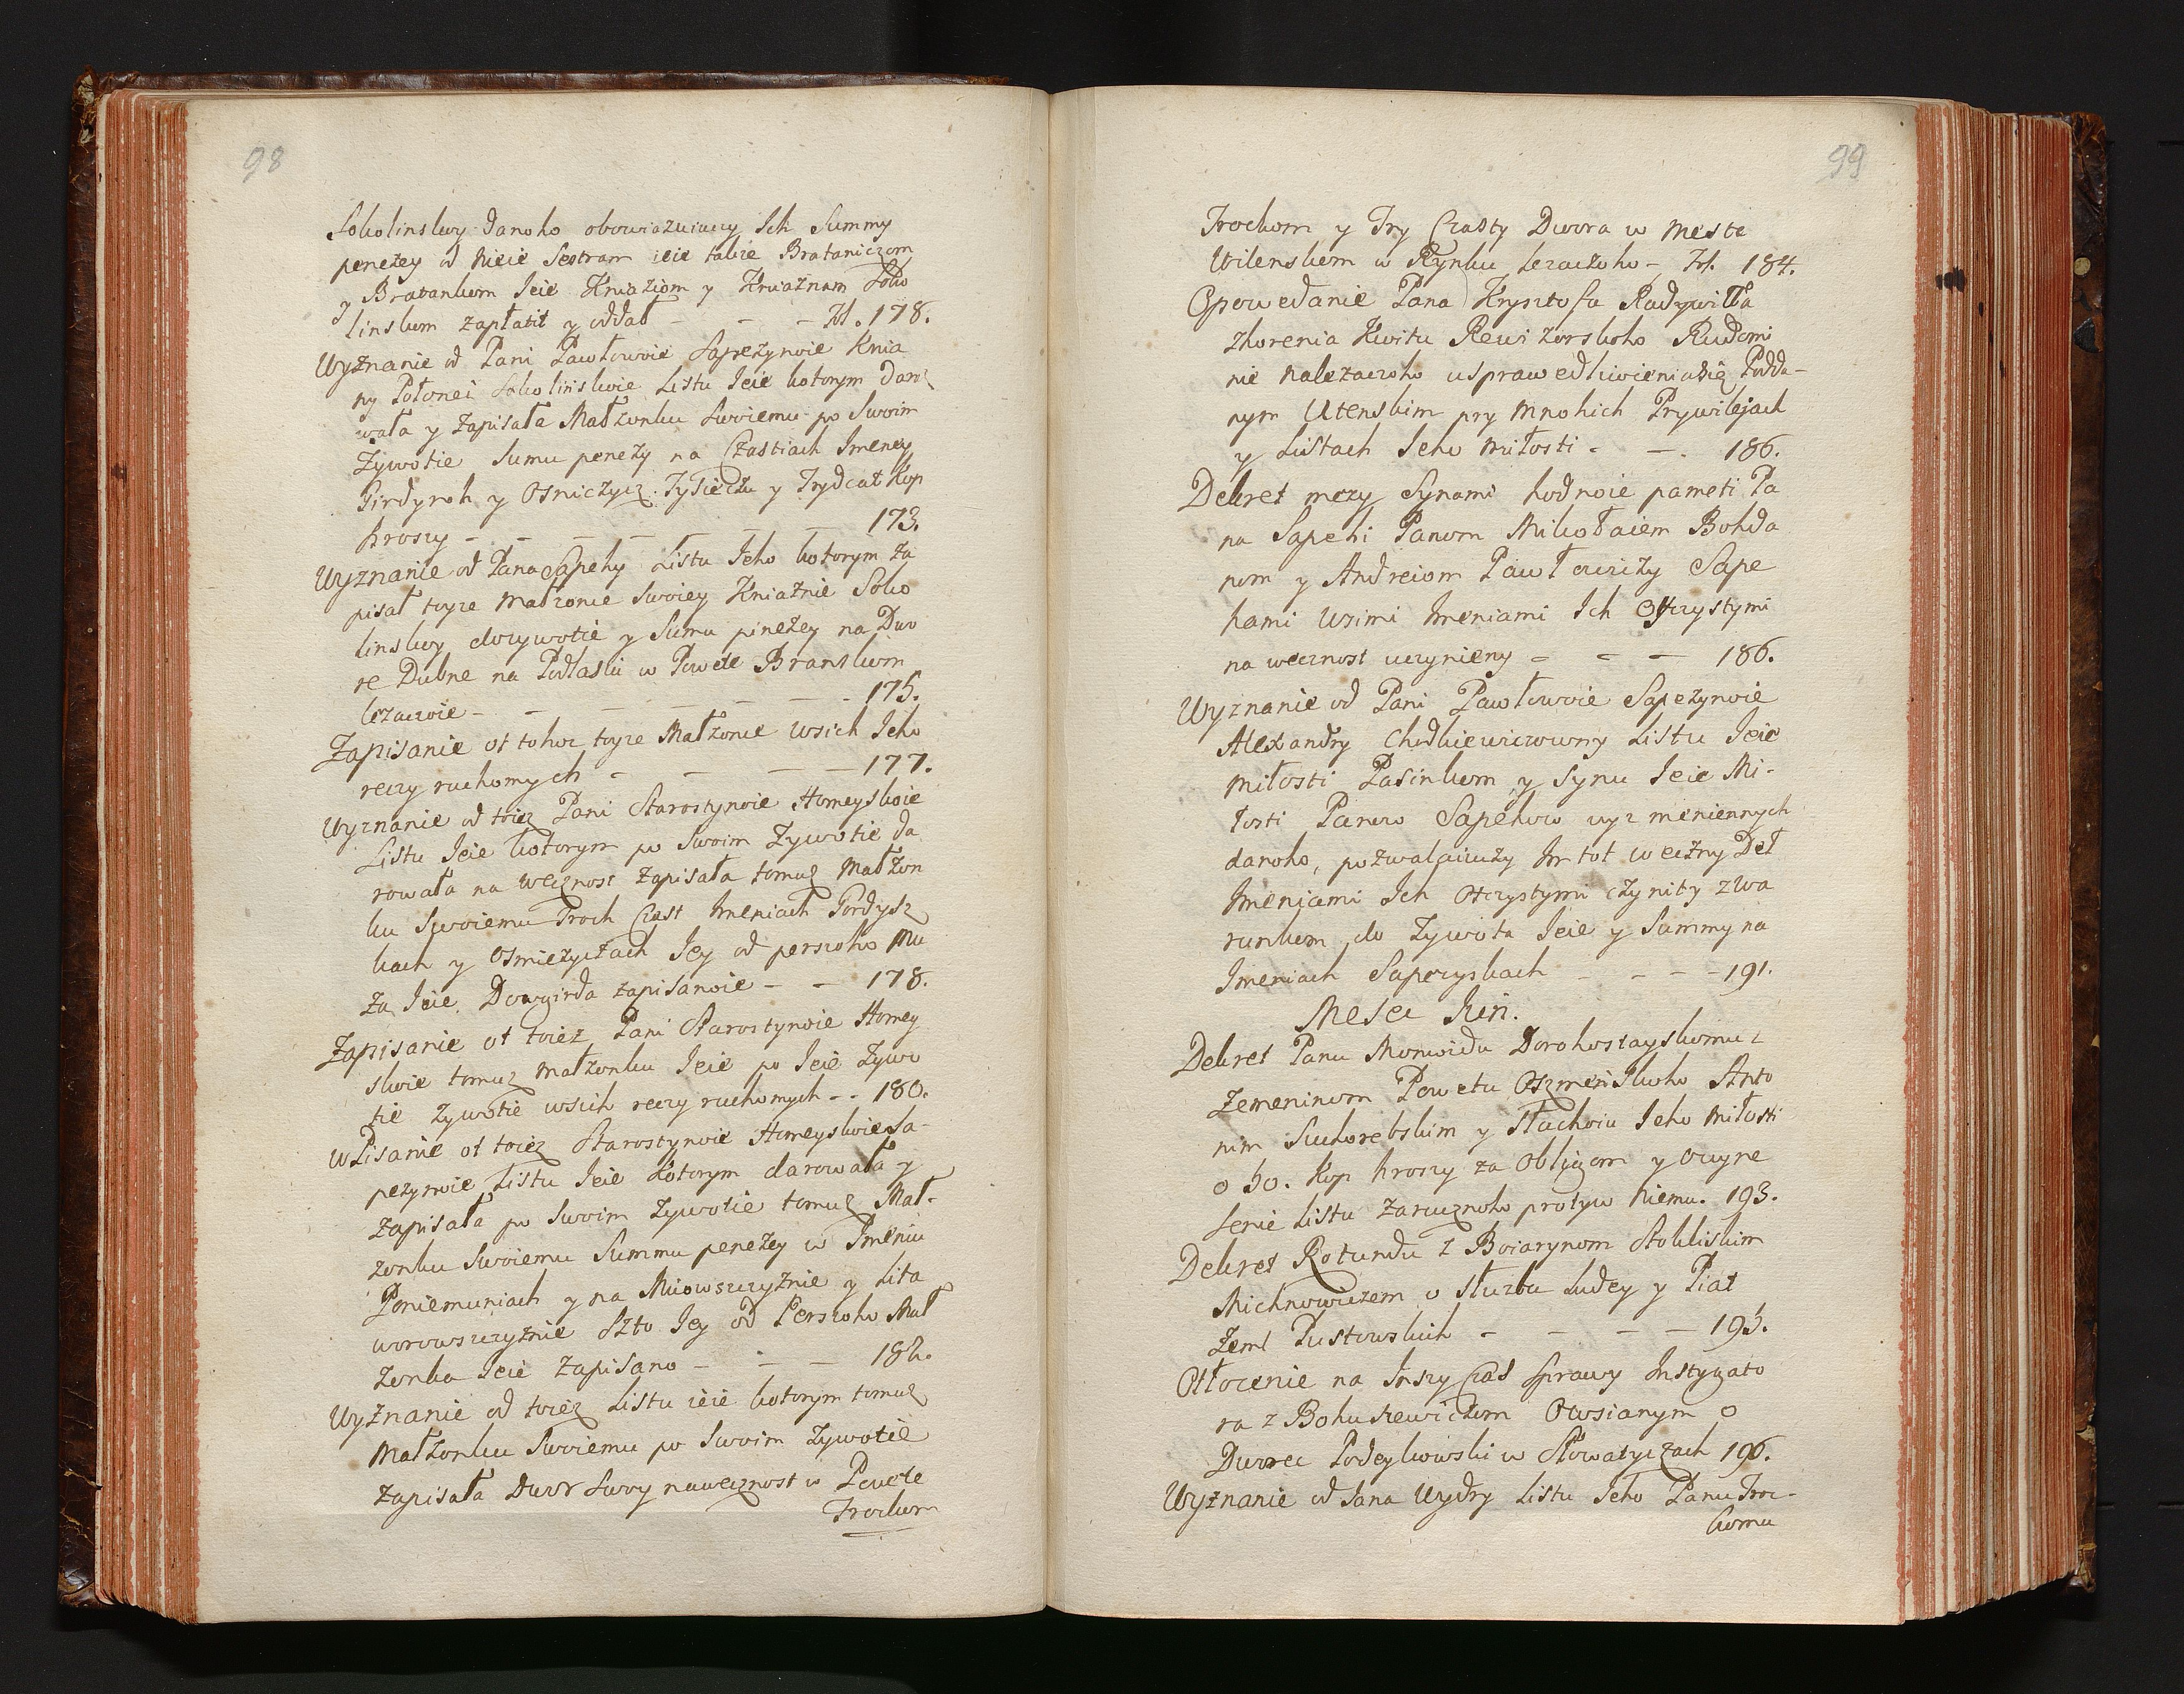 98
Sokolinskoy danoho obowiazuiuczy Ich Summy
penezey od nieie Sestram ieie takze Brataniczom
y Bratankom Ieie Kniaziom y Kniaznam Soko
linskom zapłatit y oddat - - - fol. 178.
Wyznanie od Pani Pawłowoie Sapezynoie Knia
ny Połonei Sokolinskoie Listu Ieie kotorym daro
wała y zapisała Małzonku Swoiemu po Swoim
Zywotie Sumu penezy na Czastiach Imeney
Girdyroh y Osniczycz Tysieczu y Trydcat Kop
hroszy - - - - - - 173.
Wyznanie od Pana Sapehy Listu Ieho kotorym za
pisał toyze Małzonce Swoiey Kniaznie Soko
linskoy dozywotie y Sumu pinezey na Dwo
re Dubne na Podlasiu w Powete Branskom
lezaczoie - - - - - - 175.
Zapisanie ot tohoz toyze Małzonce wsich Ieho
reczy ruchomych - - - - 177.
Wyznanie od toiez Pani Starostynoie Homeyskoie
Listu Ieie kotorym po Swoim Zywotie da
rowała na wecznost zapisała tomuz Małzon
ku Swoiemu Troch Czest Imeniach Gordysz
kach y Osmiezyczach Iey od perszoho Mu
za Ieie Dowgirda zapisanoie - - 178.
Zapisanie ot toiez Pani Starostynoie Homey
skoie tomuz Małzonku Ieie po Ieie Zywo
tie Zywotie wsich reczy ruchomych - - 180.
Wpisanie ot toiez Starostynoie Homeyskoie Sa-
pezynoie Listu Ieie kotorym darowała y
zapisała po Swoim Zywotie tomuz Mał-
zonku Swoiemu Summu penezey w Imeniu
Poniemuniach y na Miowszczyznie y Lita
worowszczyznie Szto Iey od Perszoho Mał
zonka Ieie zapisano - - - 182.
Wyznanie od toiez Listu ieie kotorym tomuz
Małzonku Swoiemu po Swoim Zywotie
zapisała Dwor Swoy nawecznost w Powete
Trockom
99
Trockom y Try Czasty Dwora w Meste
Wilenskom w Rynku lezaczoho - fol. 184.
Opowedanie Pana Krysztofa Radziwiłła
zhorenia Kwitu Rewizorskoho Rudomi
nie należaczoho usprawedliwieniasię Podda-
nym Utenskim pry mnohich Prywilejach
y Listach Ieho Miłosti - - 186.
Dekret mezy Synami hodnoie pameti Pa
na Sapehi Panom Mikołaiem Bohda
nom y Andreiom Pawłowiczy Sape
hami wsimi Imeniami Ich Otczystymi
na wecznost uczynieny - - - 186.
Wyznanie od Pani Pawłowoie Sapezynoie
Alexandry Chodkiewiczowny Listu Ieie
Miłosti Pasinkom y Synu Ieie Mi-
łosti Panow Sapehow wyz meniennych
danoho, pozwalaiuczy Im tot weczny Deł
Imeniami Ich Otczystymi czynity z wa
runkom do Zywota Ieie y Summy na
Imeniach Sapezyskach - - - 191.
Mesec Iun.
Dekret Panu Monwidu Dorohostayskomu z
Zemeninom Powetu Oszmenskoho Anto
nim Suchorebskim y Stachoiu Ieho Miłosti
o 50. Kop hroszy za Obligom y ocyne
senie Listu Zarucznoho protyw niemu. 193.
Dekret Rotundu z Boiarynom Stokliskim
Michnowiczem o Służbu Ludey y Piat
Zeml Pustowskich - - - - 195.
Otłocenie na Inszy Czas Sprawy Instygato
ra z Bohuszewiczom Owsianym o
Dworec Podeykowski w Słowatyczach 196.
Wyznanie od Iana Wydry Listu Ieho Panu Troc-
komu